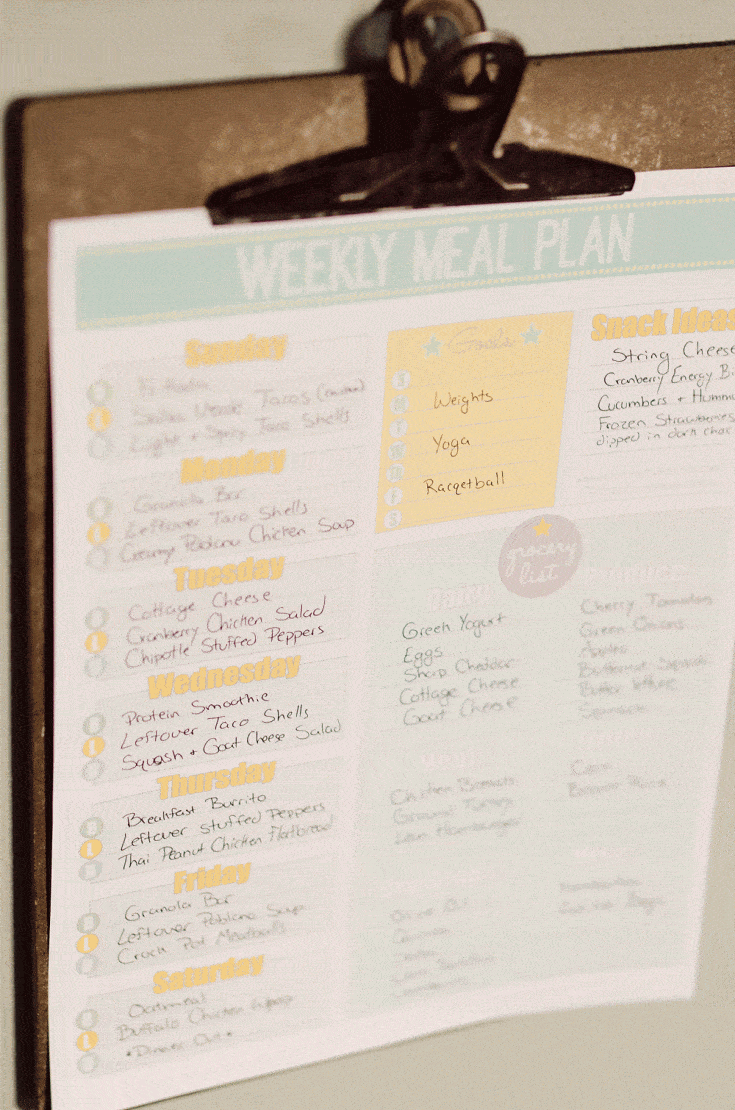 WEEKLY MEAL PLAN
Sunday
Tacos
Light + Taco Shells
Monday
Granola Bar
Leftover Taco Shells
Creamy Poblano Chicken Soup
Tuesday
Cottage Cheese
Cranberry Chicken Salad
Chipotle Stuffed Peppers
Wednesday
Protein Smoothie
Leftover Taco Shells
Squash + Goat Cheese Salad
Thursday
Breakfast Burrito
Leftover Stuffed Peppers
Thai Peanut Chicken Flatbread
Friday
Granola Bar
Leftover Poblano Soup
Crock Pot Meatballs
Saturday
Oatmeal
Buffalo Chicken Wrap
*Dinner Out*
Goals
Weights
Yoga
Racqetball
Snack Ideas
String Cheese
Cranberry Energy Bi
Cucumbers + Hummu
Frozen Strawberries
dipped in dark choc
grocery
list
Greek Yogurt
Eggs
Sharp Cheddar
Cottage Cheese
Goat Cheese
Chicken Breasts
Ground Turkey
Lean Hamburger
Olive Oil
Cherry Tomatoes
Green Onions
Apples
Butternut Squash
Butter lettuce
Corn
Brown Rice